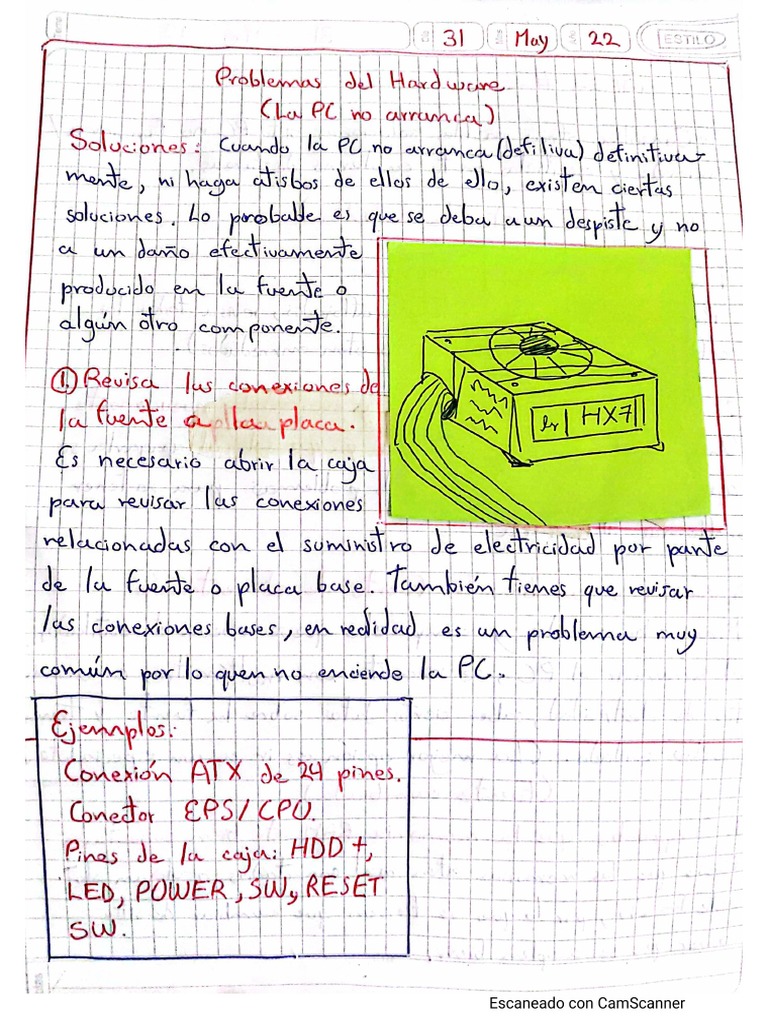 31 May 22 ESTILO
Problemas del Hardware
(La PC no arranca)
Soluciones: Cuando la PC no arranca (defiliva) definitiva-
mente, ni haga atisbos de ellos de ello, existen ciertas
soluciones. Lo probable es que se deba a un despiste y no
a un daño efectivamente
producido en la fuente o
algún otro componente.
① Revisa las conexiones de
la fuente a lla placa.
HX7
Es necesario abrir la caja
para revisar las conexiones
relacionadas con el suministro de electricidad por parte
de la fuente o placa base. También tienes que revisar
las conexiones bases, en realidad es un problema muy
común por lo quen no enciende la PC.
Ejemplos:
Conexión ATX de 24 pines.
Conector EPS/CPU.
Pines de la caja: HDD +,
LED, POWER, SW y RESET
SW.
Escaneado con CamScanner